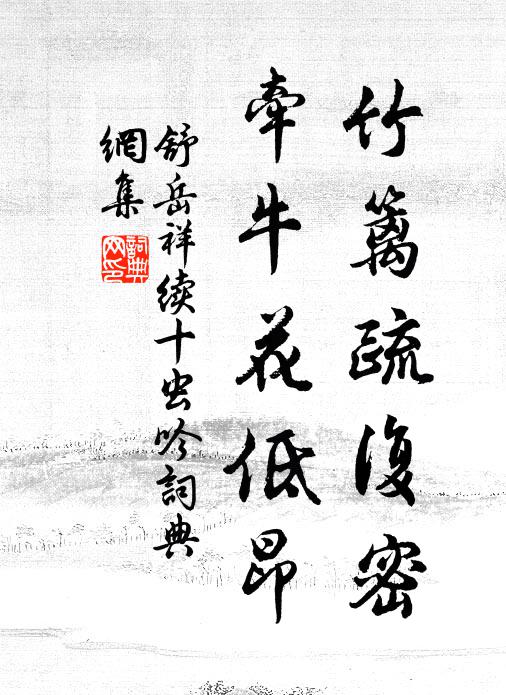 竹籬疏復密
牽牛花低昂
舒岳祥續十虫吟詞典
網集
詞典
网印